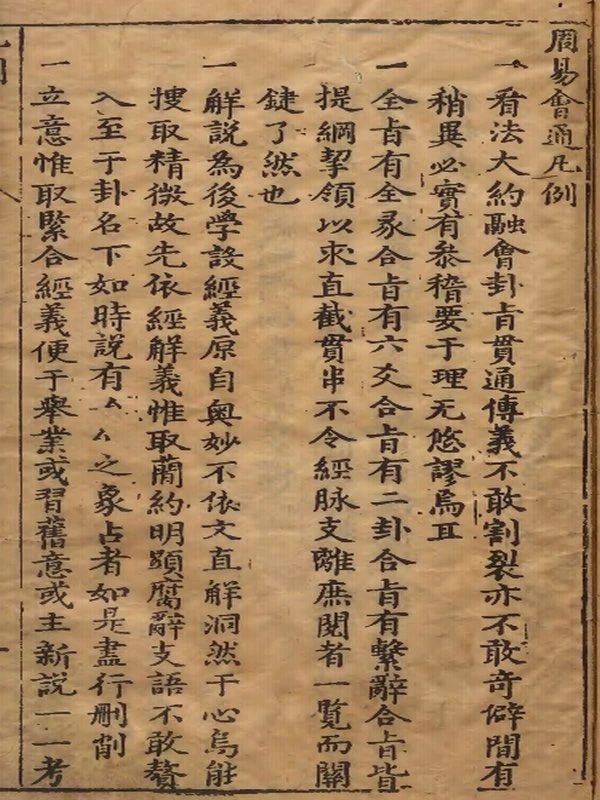 周易會通凡例
一看法大約融會卦㫖貫通傳義不敢割裂亦不敢奇僻間有
稍異必實有叅稽要于理无悠謬焉耳
一全㫖有全彖合㫖有六爻合㫖有二卦合㫖有繫辭合㫖皆
提綱挈領以求直截貫串不令經脉支離庶閱者一覧而關
鍵了然也
一解說為後學設經義原自奥妙不依文直解洞然于心烏能
搜取精微故先依經解義惟取蕳約明顯腐辭支語不敢贅
入至于卦名下如時說有厶厶之象占者如是盡行刪削
一立意惟取緊合經義便于舉業或習舊意或主新說一一考